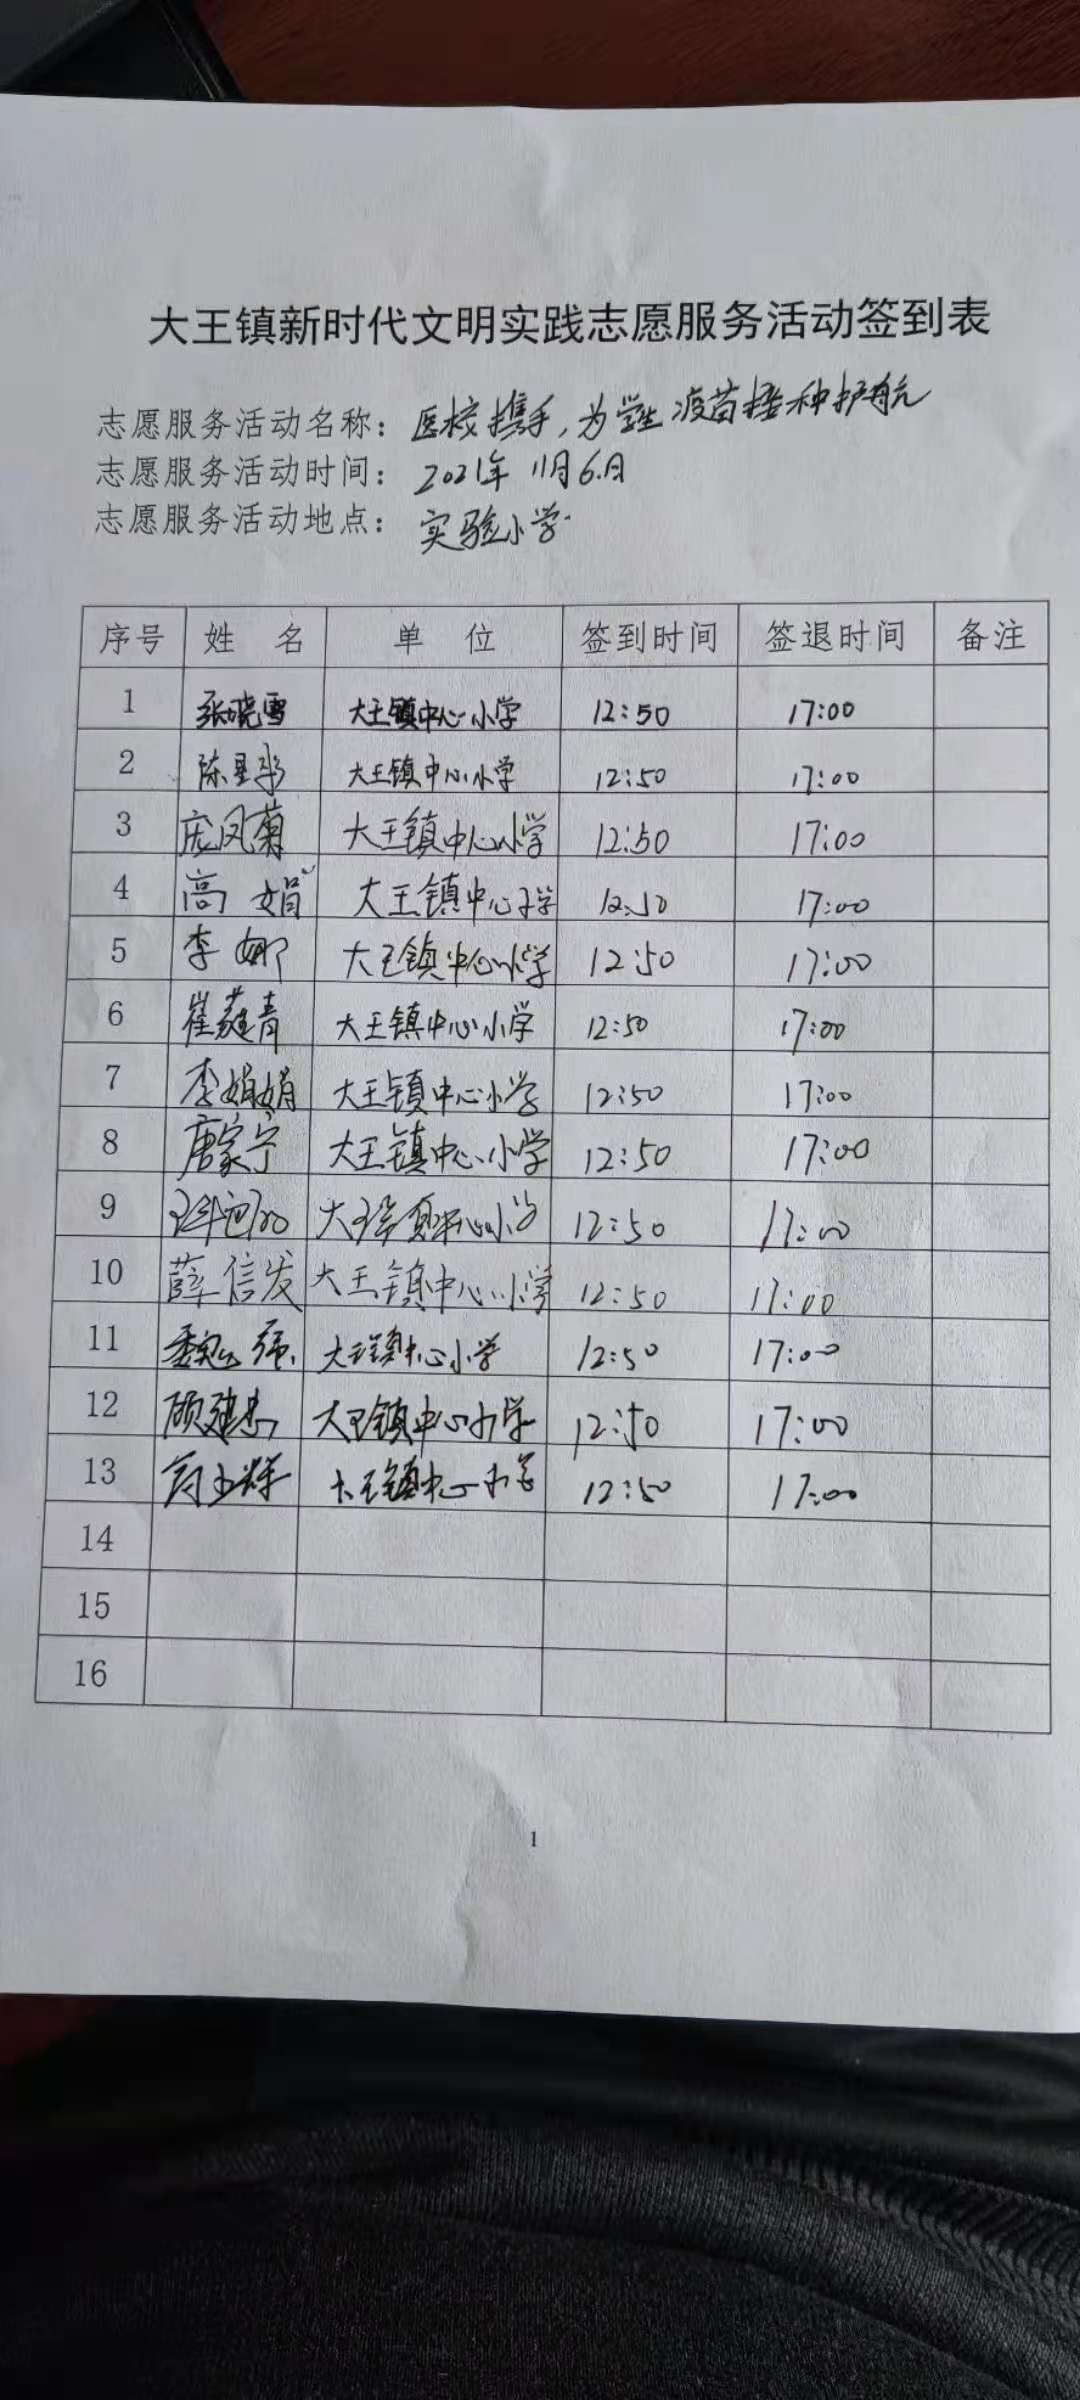 大王镇新时代文明实践志愿服务活动签到表
志愿服务活动名称：医校携手，为学生疫苗接种护航
志愿服务活动时间：2021年11月6日
志愿服务活动地点：实验小学
序号 姓 名 单 位 签到时间 签退时间 备注
1 张晓雪 大王镇中心小学 12:50 17:00
2 陈 大王镇中心小学 12:50 17:00
3 庞凤菊 大王镇中心小学 12:50 17:00
4 高娟 大王镇中心小学 12:50 17:00
5 李娜 大王镇中心小学 12:50 17:00
6 崔 青 大王镇中心小学 12:50 17:00
7 李娟娟 大王镇中心小学 12:50 17:00
8 唐家宁 大王镇中心小学 12:50 17:00
9 大王镇中心小学 12:50 17:00
10 薛信发 大王镇中心小学 12:50 17:00
11 魏 强 大王镇中心小学 12:50 17:00
12 顾建 大王镇中心小学 12:50 17:00
13 大王镇中心小学 12:50 17:00
14
15
16
1